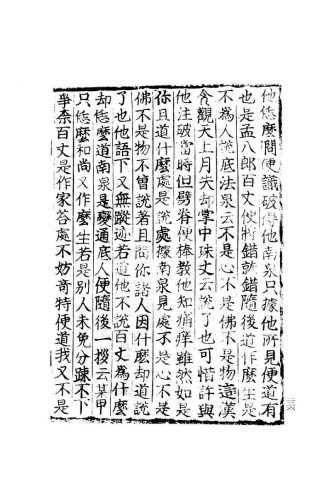 他恁麼問便識破得他南泉只據他所見便道有
也是孟八郎百丈便將錯就錯隨後道作麼生是
不為人說底法泉云不是心不是佛不是物這漢
貪觀天上月失却掌中珠丈云說了也可惜許與
他注破當時但劈脊便棒教他知痛痒雖然如是
你且道什麼處是說處據南泉見處不是心不是
佛不是物不曾說著且問你諸人因什麼却道說
了也他語下又無蹤迹若道他不說百丈為什麼
却恁麼道南泉是變通底人便隨後一拶云某甲
只恁麼和尚又作麼生若是別人未免分踈不下
爭柰百丈是作家答處不妨奇特便道我又不是